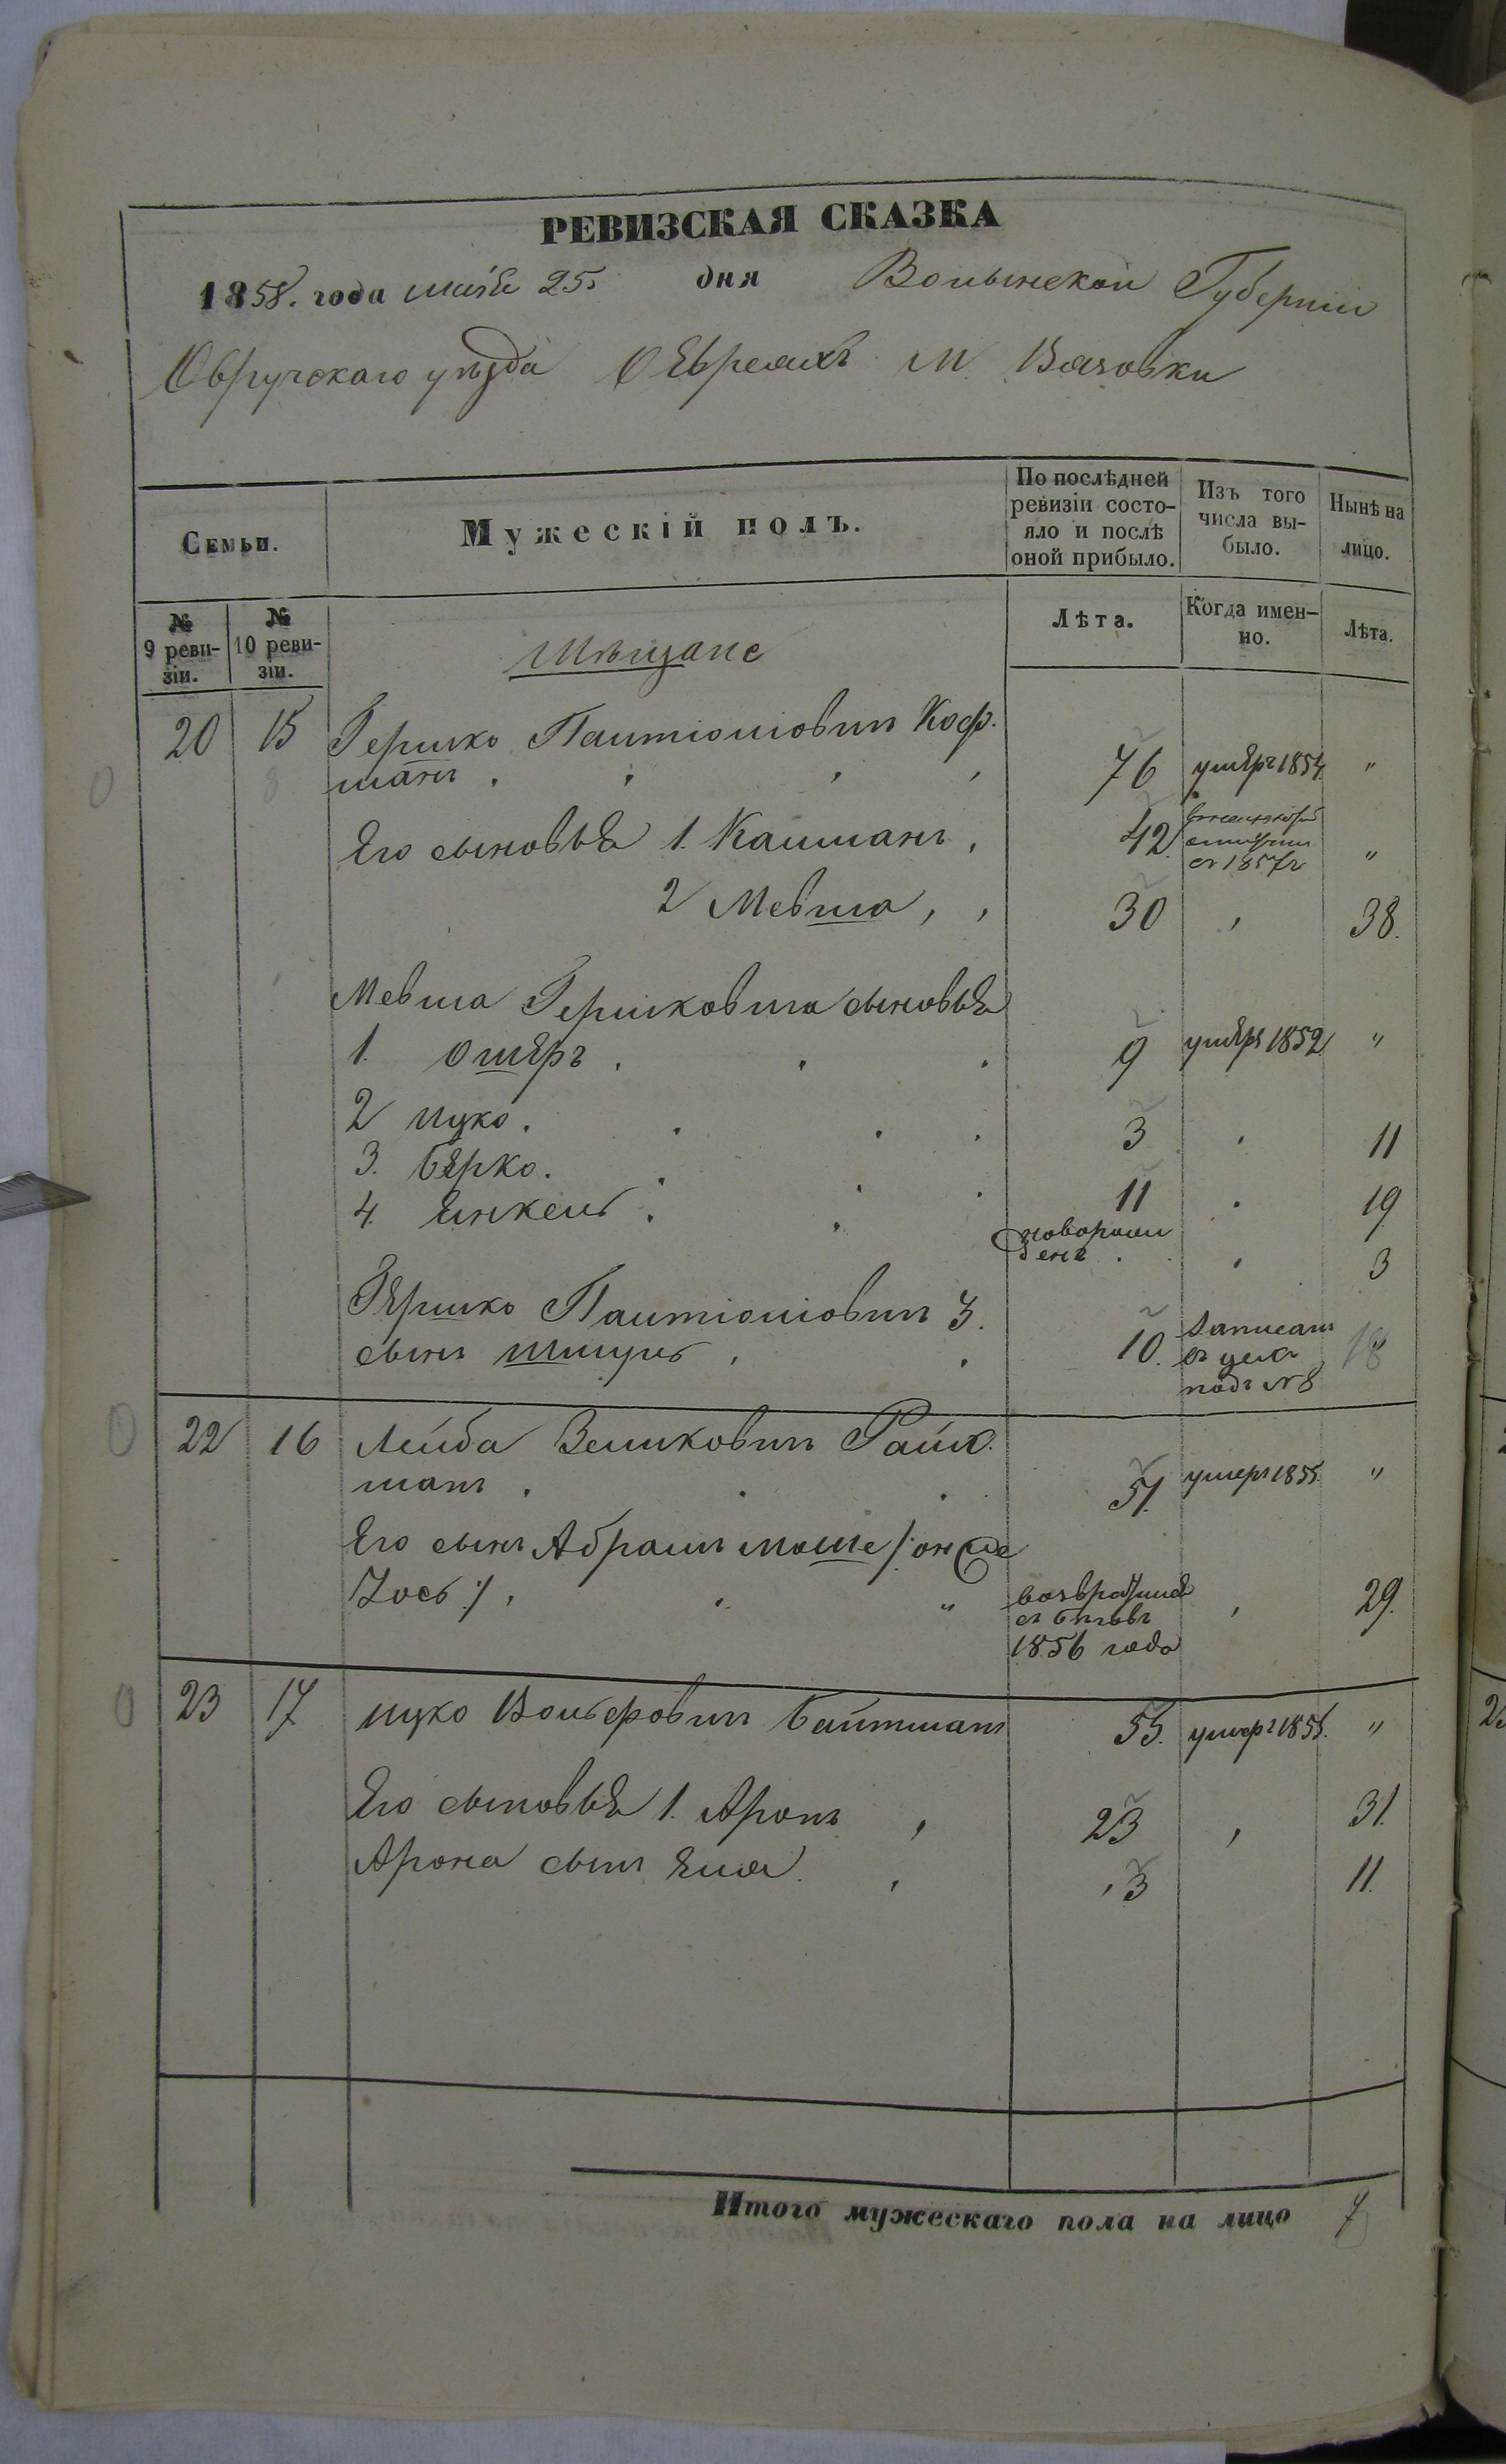 РЕВИЗСКАЯ СКАЗКА
1858. года маія 25 дня Волынской Губерніи
Овручскаго уѣзда О Евреяхъ М. Вязовки
Семьи.
Мужескій полъ.
По послѣдней ревизіи состо-
яло и послѣ
оной прибыло.
Изъ того
числа вы-
было.
Нынѣ на
лицо.
№
9 реви-
зіи.
№
10 реви-
зіи.
Мѣщане
Лѣта.
Когда имен-
но.
Лѣта.
20 15 Гершко Пантіоліовичъ Коф.
манъ 76 умеръ 1854 "
Его сыновья 1. Калманъ 42 съ 1857г "
2 Мевша 30 38.
Мевша Гершковича сыновья
1. Ошеръ 9 умеръ 1852 "
2 Ицко. 3 11
3. Берко. 11 19
4. Янкель новорож
денъ 3
Гершко Пантіоліовичъ 3.
сынъ Шмуль 10. Записанъ
подъ №8 18
22 16 Лейба Зеликовичъ Райх.
манъ 51. умеръ 1855. "
Его сынъ Абрамъ Моше /: онъ же
Іось :/ " возвратился
съ бѣговъ
1856 года 29.
23 17 Ицко Вольфовичъ Байтманъ 55. умеръ 1855. "
Его сыновья 1. Аронъ 23 31.
Арона сынъ Еля 3 11.
Итого мужескаго пола на лицо 7